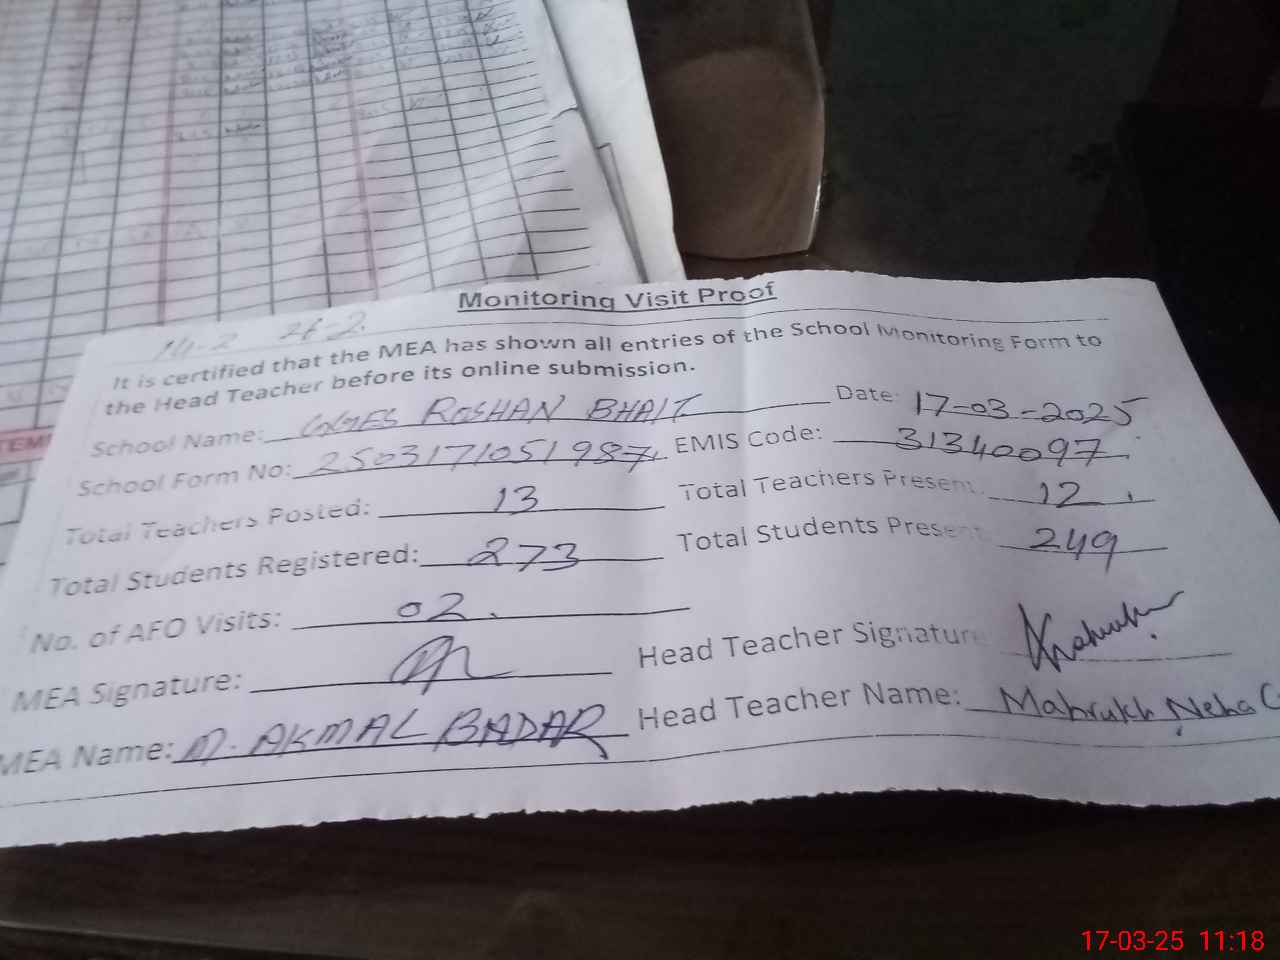 Monitoring Visit Proof
14-2 26-2.
It is certified that the MEA has shown all entries of the School Monitoring Form to
the Head Teacher before its online submission.
School Name: GGES ROSHAN BHAIT Date: 17-03-2025
School Form No: 2503171051987 EMIS Code: 31340097
Total Teachers Posted: 13 Total Teachers Present: 12
Total Students Registered: 273 Total Students Present 249
No. of AFO Visits: 02.
MEA Signature: Head Teacher Signature
MEA Name: M. AKMAL BADAR Head Teacher Name: Mahrukh Neha G
17-03-25 11:18